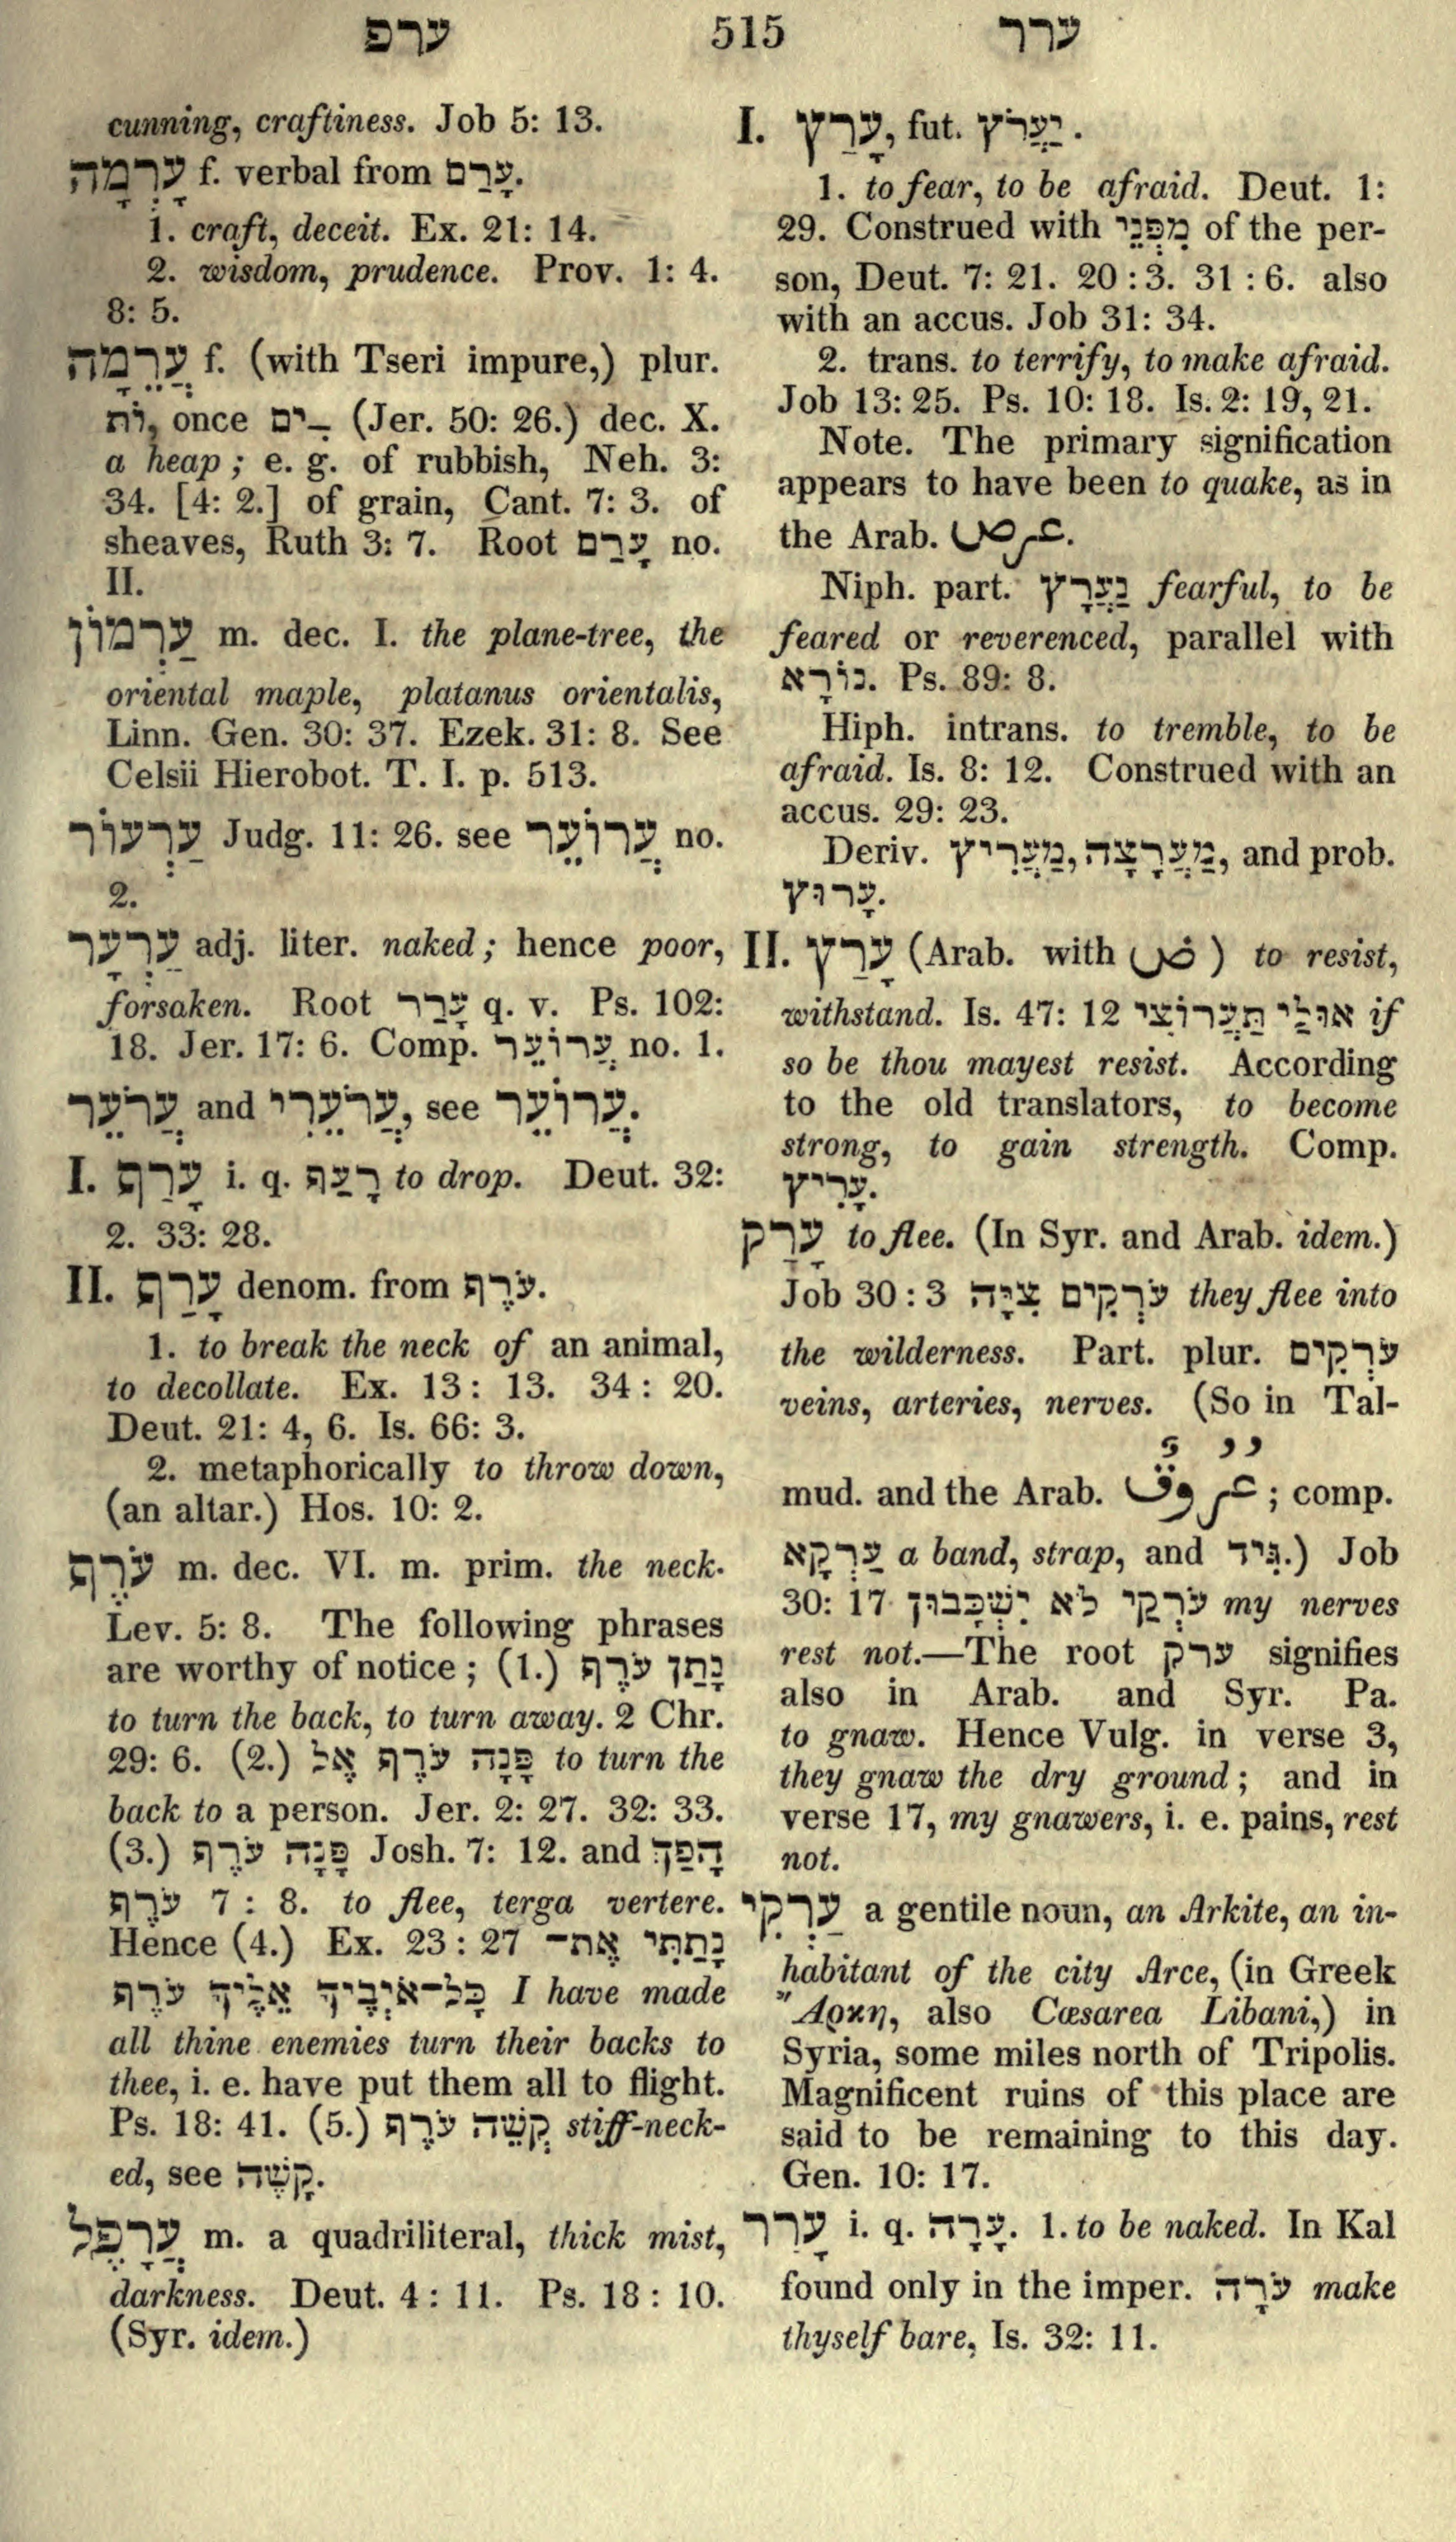 ערפ 515 ערר
cunning, craftiness. Job 5: 13.
עָרְמָה f. verbal from עָרַם.
1. craft, deceit. Ex. 21: 14.
2. wisdom, prudence. Prov. 1: 4.
8: 5.
עֲרֵמָה f. (with Tseri impure,) plur.
וֹת, once ־ִים (Jer. 50: 26.) dec. X.
a heap; e. g. of rubbish, Neh. 3:
34. [4: 2.] of grain, Cant. 7: 3. of
sheaves, Ruth 3: 7. Root עָרַם no.
II.
עַרְמוֹן m. dec. I. the plane-tree, the
oriental maple, platanus orientalis,
Linn. Gen. 30: 37. Ezek. 31: 8. See
Celsii Hierobot. T. I. p. 513.
עַרְעוֹר Judg. 11: 26. see עֲרוֹעֵר no.
2.
עַרְעָר adj. liter. naked; hence poor,
forsaken. Root עָרַר q. v. Ps. 102:
18. Jer. 17: 6. Comp. עֲרוֹעֵר no. 1.
עֲרֹעֵר and עֲרֹעֵרִי, see עֲרוֹעֵר.
I. עָרַף i. q. רָעַף to drop. Deut. 32:
2. 33: 28.
II. עָרַף denom. from עֹרֶף.
1. to break the neck of an animal,
to decollate. Ex. 13: 13. 34: 20.
Deut. 21: 4, 6. Is. 66: 3.
2. metaphorically to throw down,
(an altar.) Hos. 10: 2.
עֹרֶף m. dec. VI. m. prim. the neck.
Lev. 5: 8. The following phrases
are worthy of notice; (1.) נָתַן עֹרֶף
to turn the back, to turn away. 2 Chr.
29: 6. (2.) פָּנָה עֹרֶף אֶל to turn the
back to a person. Jer. 2: 27. 32: 33.
(3.) פָּנָה עֹרֶף Josh. 7: 12. and הָפַךְ
עֹרֶף 7: 8. to flee, terga vertere.
Hence (4.) Ex. 23: 27 נָתַתִּי אֶת־
כָּל־אֹיְבֶיךָ אֵלֶיךָ עֹרֶף I have made
all thine enemies turn their backs to
thee, i. e. have put them all to flight.
Ps. 18: 41. (5.) קְשֵׁה עֹרֶף stiff-neck-
ed, see קָשֶׁה.
עֲרָפֶל m. a quadriliteral, thick mist,
darkness. Deut. 4: 11. Ps. 18: 10.
(Syr. idem.)
I. עָרַץ, fut. יַעֲרֹץ.
1. to fear, to be afraid. Deut. 1:
29. Construed with מִפְּנֵי of the per-
son, Deut. 7: 21. 20: 3. 31: 6. also
with an accus. Job 31: 34.
2. trans. to terrify, to make afraid.
Job 13: 25. Ps. 10: 18. Is. 2: 19, 21.
Note. The primary signification
appears to have been to quake, as in
the Arab. عرص.
Niph. part. נַעֲרָץ fearful, to be
feared or reverenced, parallel with
נוֹרָא. Ps. 89: 8.
Hiph. intrans. to tremble, to be
afraid. Is. 8: 12. Construed with an
accus. 29: 23.
Deriv. מַעֲרָצָה, מַעֲרִיץ, and prob.
עָרוּץ.
II. עָרַץ (Arab. with ض) to resist,
withstand. Is. 47: 12 אוּלַי תַּעֲרוֹצִי if
so be thou mayest resist. According
to the old translators, to become
strong, to gain strength. Comp.
עָרִיץ.
עָרַק to flee. (In Syr. and Arab. idem.)
Job 30: 3 עֹרְקִים צִיָּה they flee into
the wilderness. Part. plur. עֹרְקִים
veins, arteries, nerves. (So in Tal-
mud. and the Arab. عُرُوقٌ; comp.
עַרְקָא a band, strap, and גִּיד.) Job
30: 17 עֹרְקַי לֹא יִשְׁכָּבוּן my nerves
rest not.—The root ערק signifies
also in Arab. and Syr. Pa.
to gnaw. Hence Vulg. in verse 3,
they gnaw the dry ground; and in
verse 17, my gnawers, i. e. pains, rest
not.
עַרְקִי a gentile noun, an Arkite, an in-
habitant of the city Arce, (in Greek
Ἄρκη, also Cæsarea Libani,) in
Syria, some miles north of Tripolis.
Magnificent ruins of this place are
said to be remaining to this day.
Gen. 10: 17.
עָרַר i. q. עָרָה. 1. to be naked. In Kal
found only in the imper. עֹרָה make
thyself bare, Is. 32: 11.